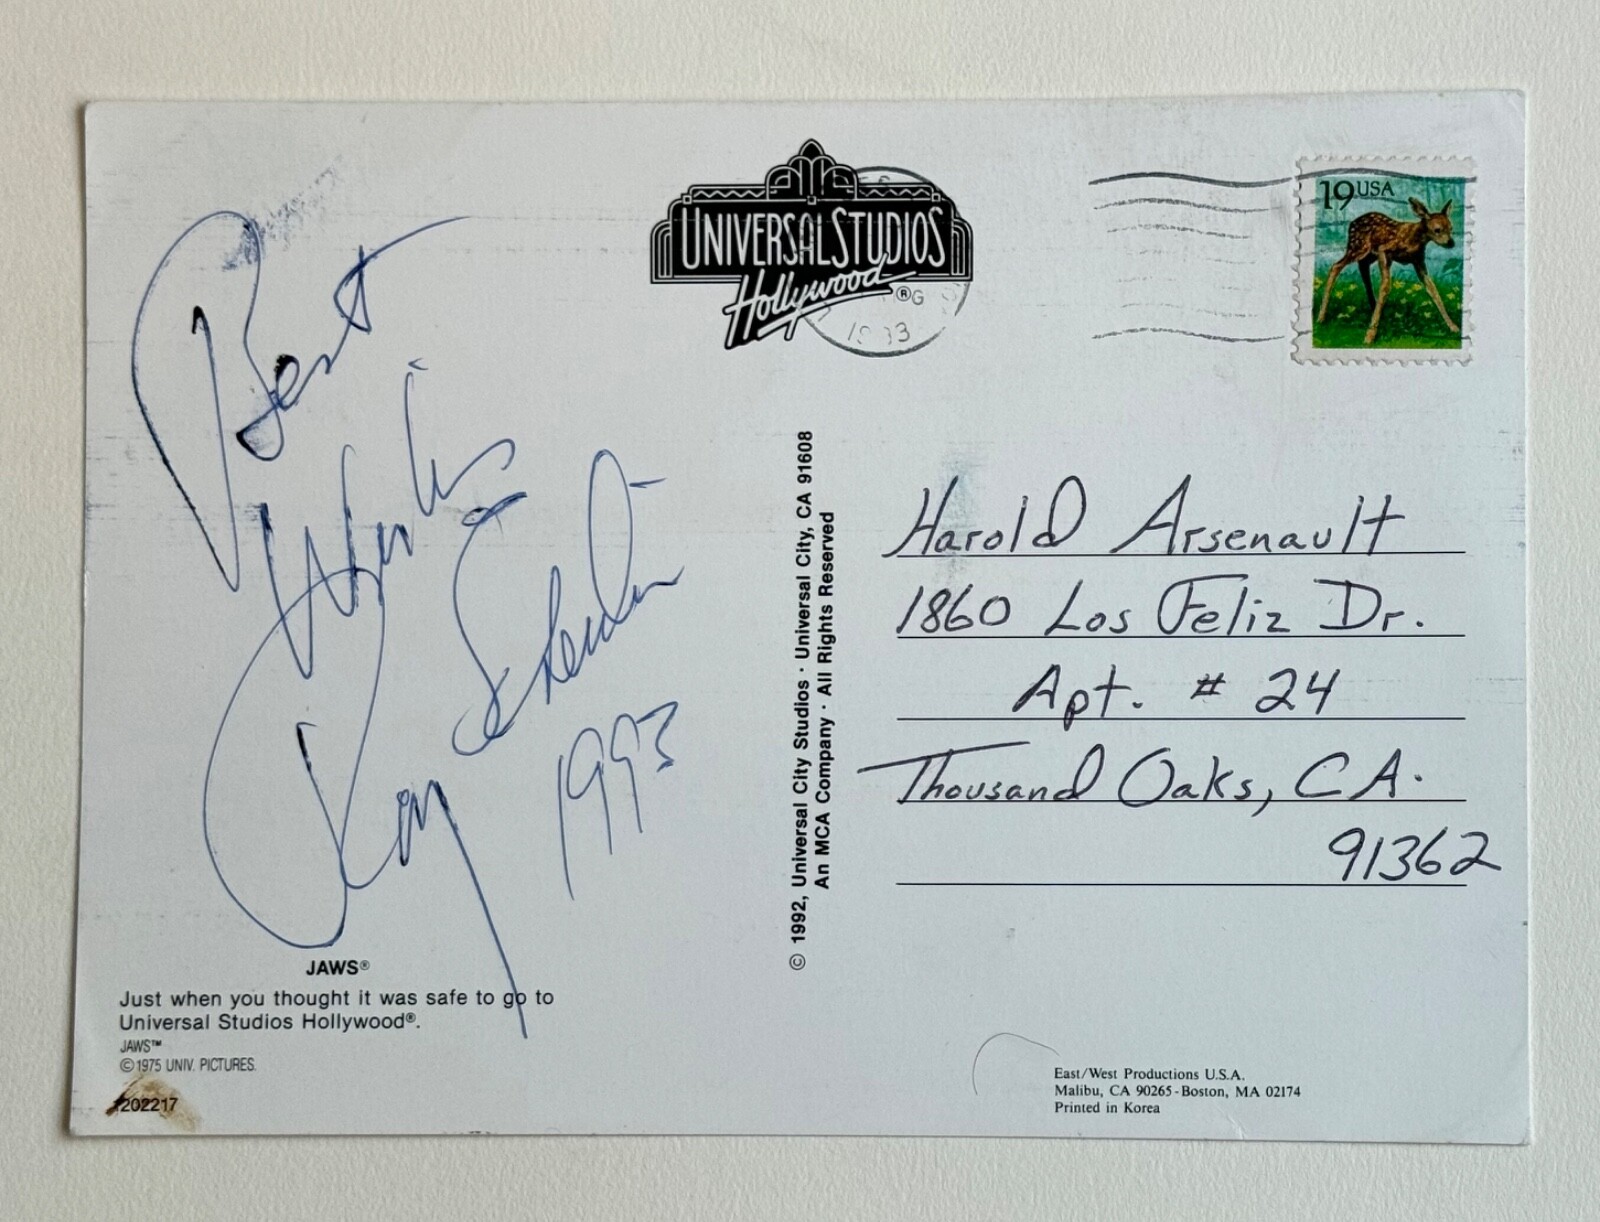 UNIVERSAL STUDIOS
Hollywood®
19 USA
Best
Wishes
Roy Scheider
1993
© 1992, Universal City Studios · Universal City, CA 91608
An MCA Company · All Rights Reserved
Harold Arsenault
1860 Los Feliz Dr.
Apt. # 24
Thousand Oaks, CA.
91362
JAWS®
Just when you thought it was safe to go to
Universal Studios Hollywood®.
JAWS™
©1975 UNIV. PICTURES.
1202217
East/West Productions U.S.A.
Malibu, CA 90265-Boston, MA 02174
Printed in Korea